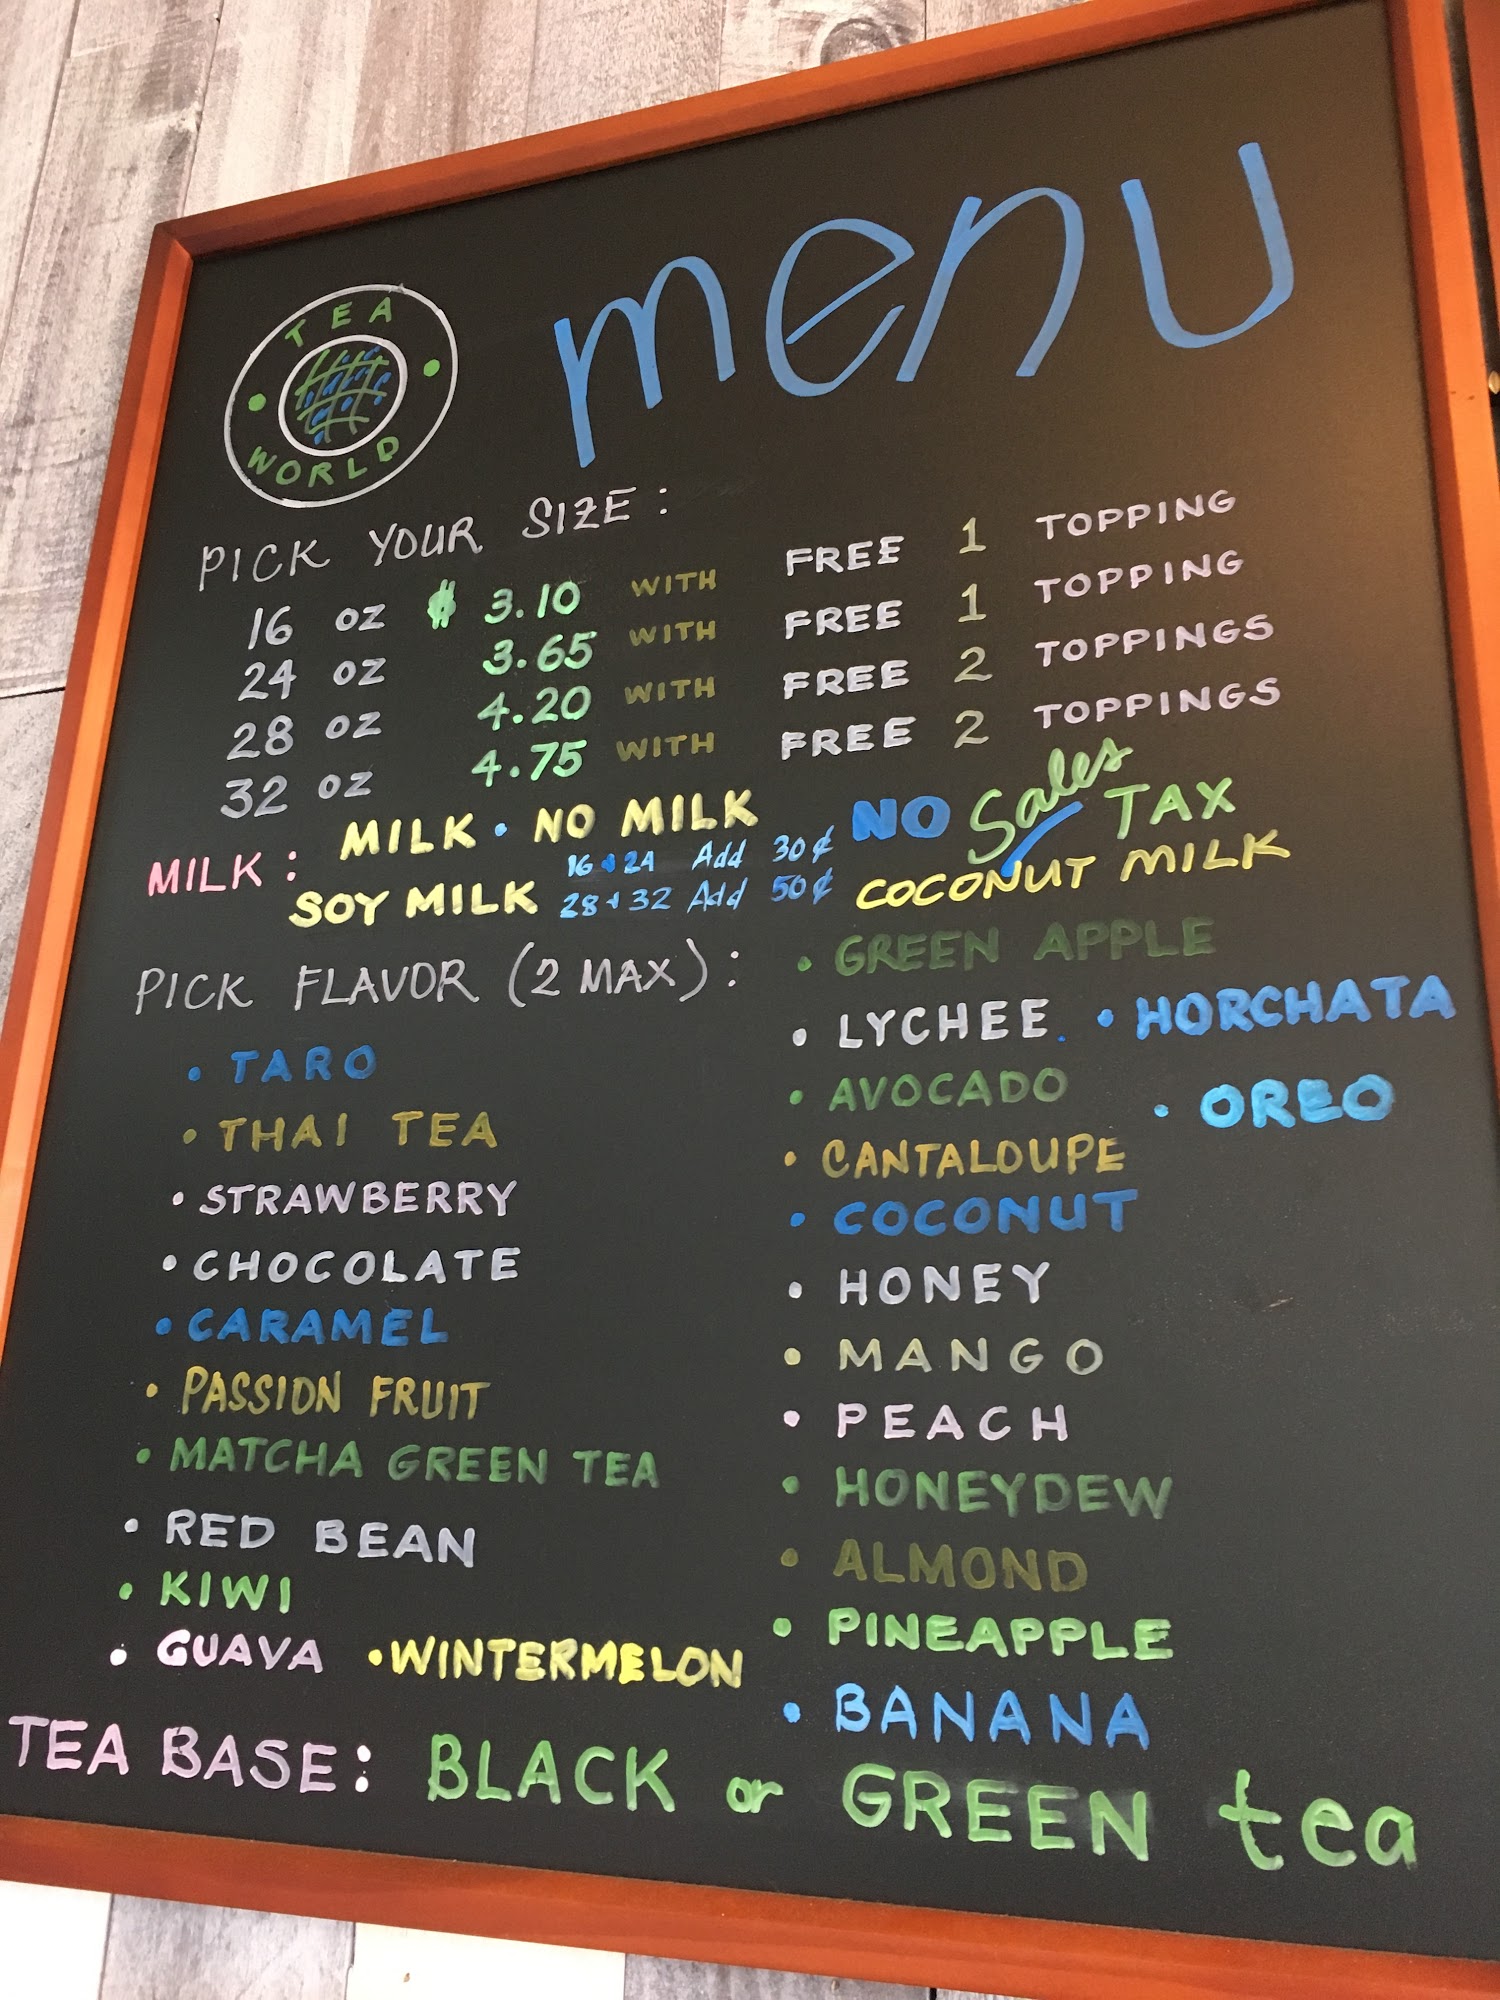 TEA
WORLD
menu
PICK YOUR SIZE:
16 oz $ 3.10 WITH FREE 1 TOPPING
24 oz 3.65 WITH FREE 1 TOPPING
28 oz 4.20 WITH FREE 2 TOPPINGS
32 oz 4.75 WITH FREE 2 TOPPINGS
NO Sales TAX
MILK: MILK • NO MILK
SOY MILK 16 + 24 Add 30¢
28 + 32 Add 50¢
COCONUT MILK
PICK FLAVOR (2 MAX):
• TARO
• THAI TEA
• STRAWBERRY
• CHOCOLATE
• CARAMEL
• PASSION FRUIT
• MATCHA GREEN TEA
• RED BEAN
• KIWI
• GUAVA • WINTERMELON
• GREEN APPLE
• LYCHEE. • HORCHATA
• AVOCADO • OREO
• CANTALOUPE
• COCONUT
• HONEY
• MANGO
• PEACH
• HONEYDEW
• ALMOND
• PINEAPPLE
• BANANA
TEA BASE: BLACK or GREEN tea